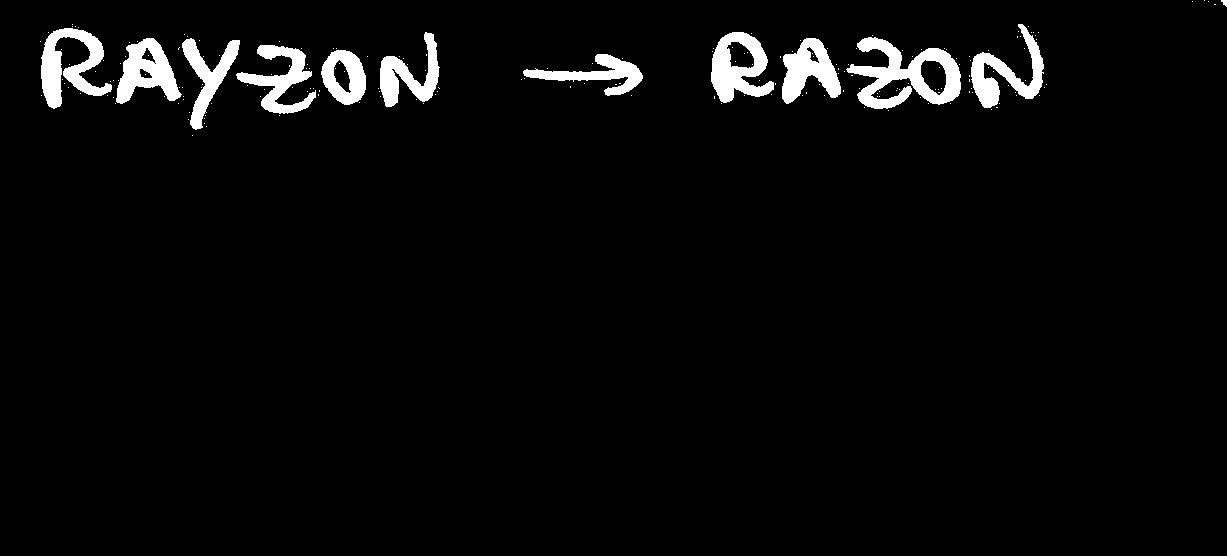 RAYZON → RAZON